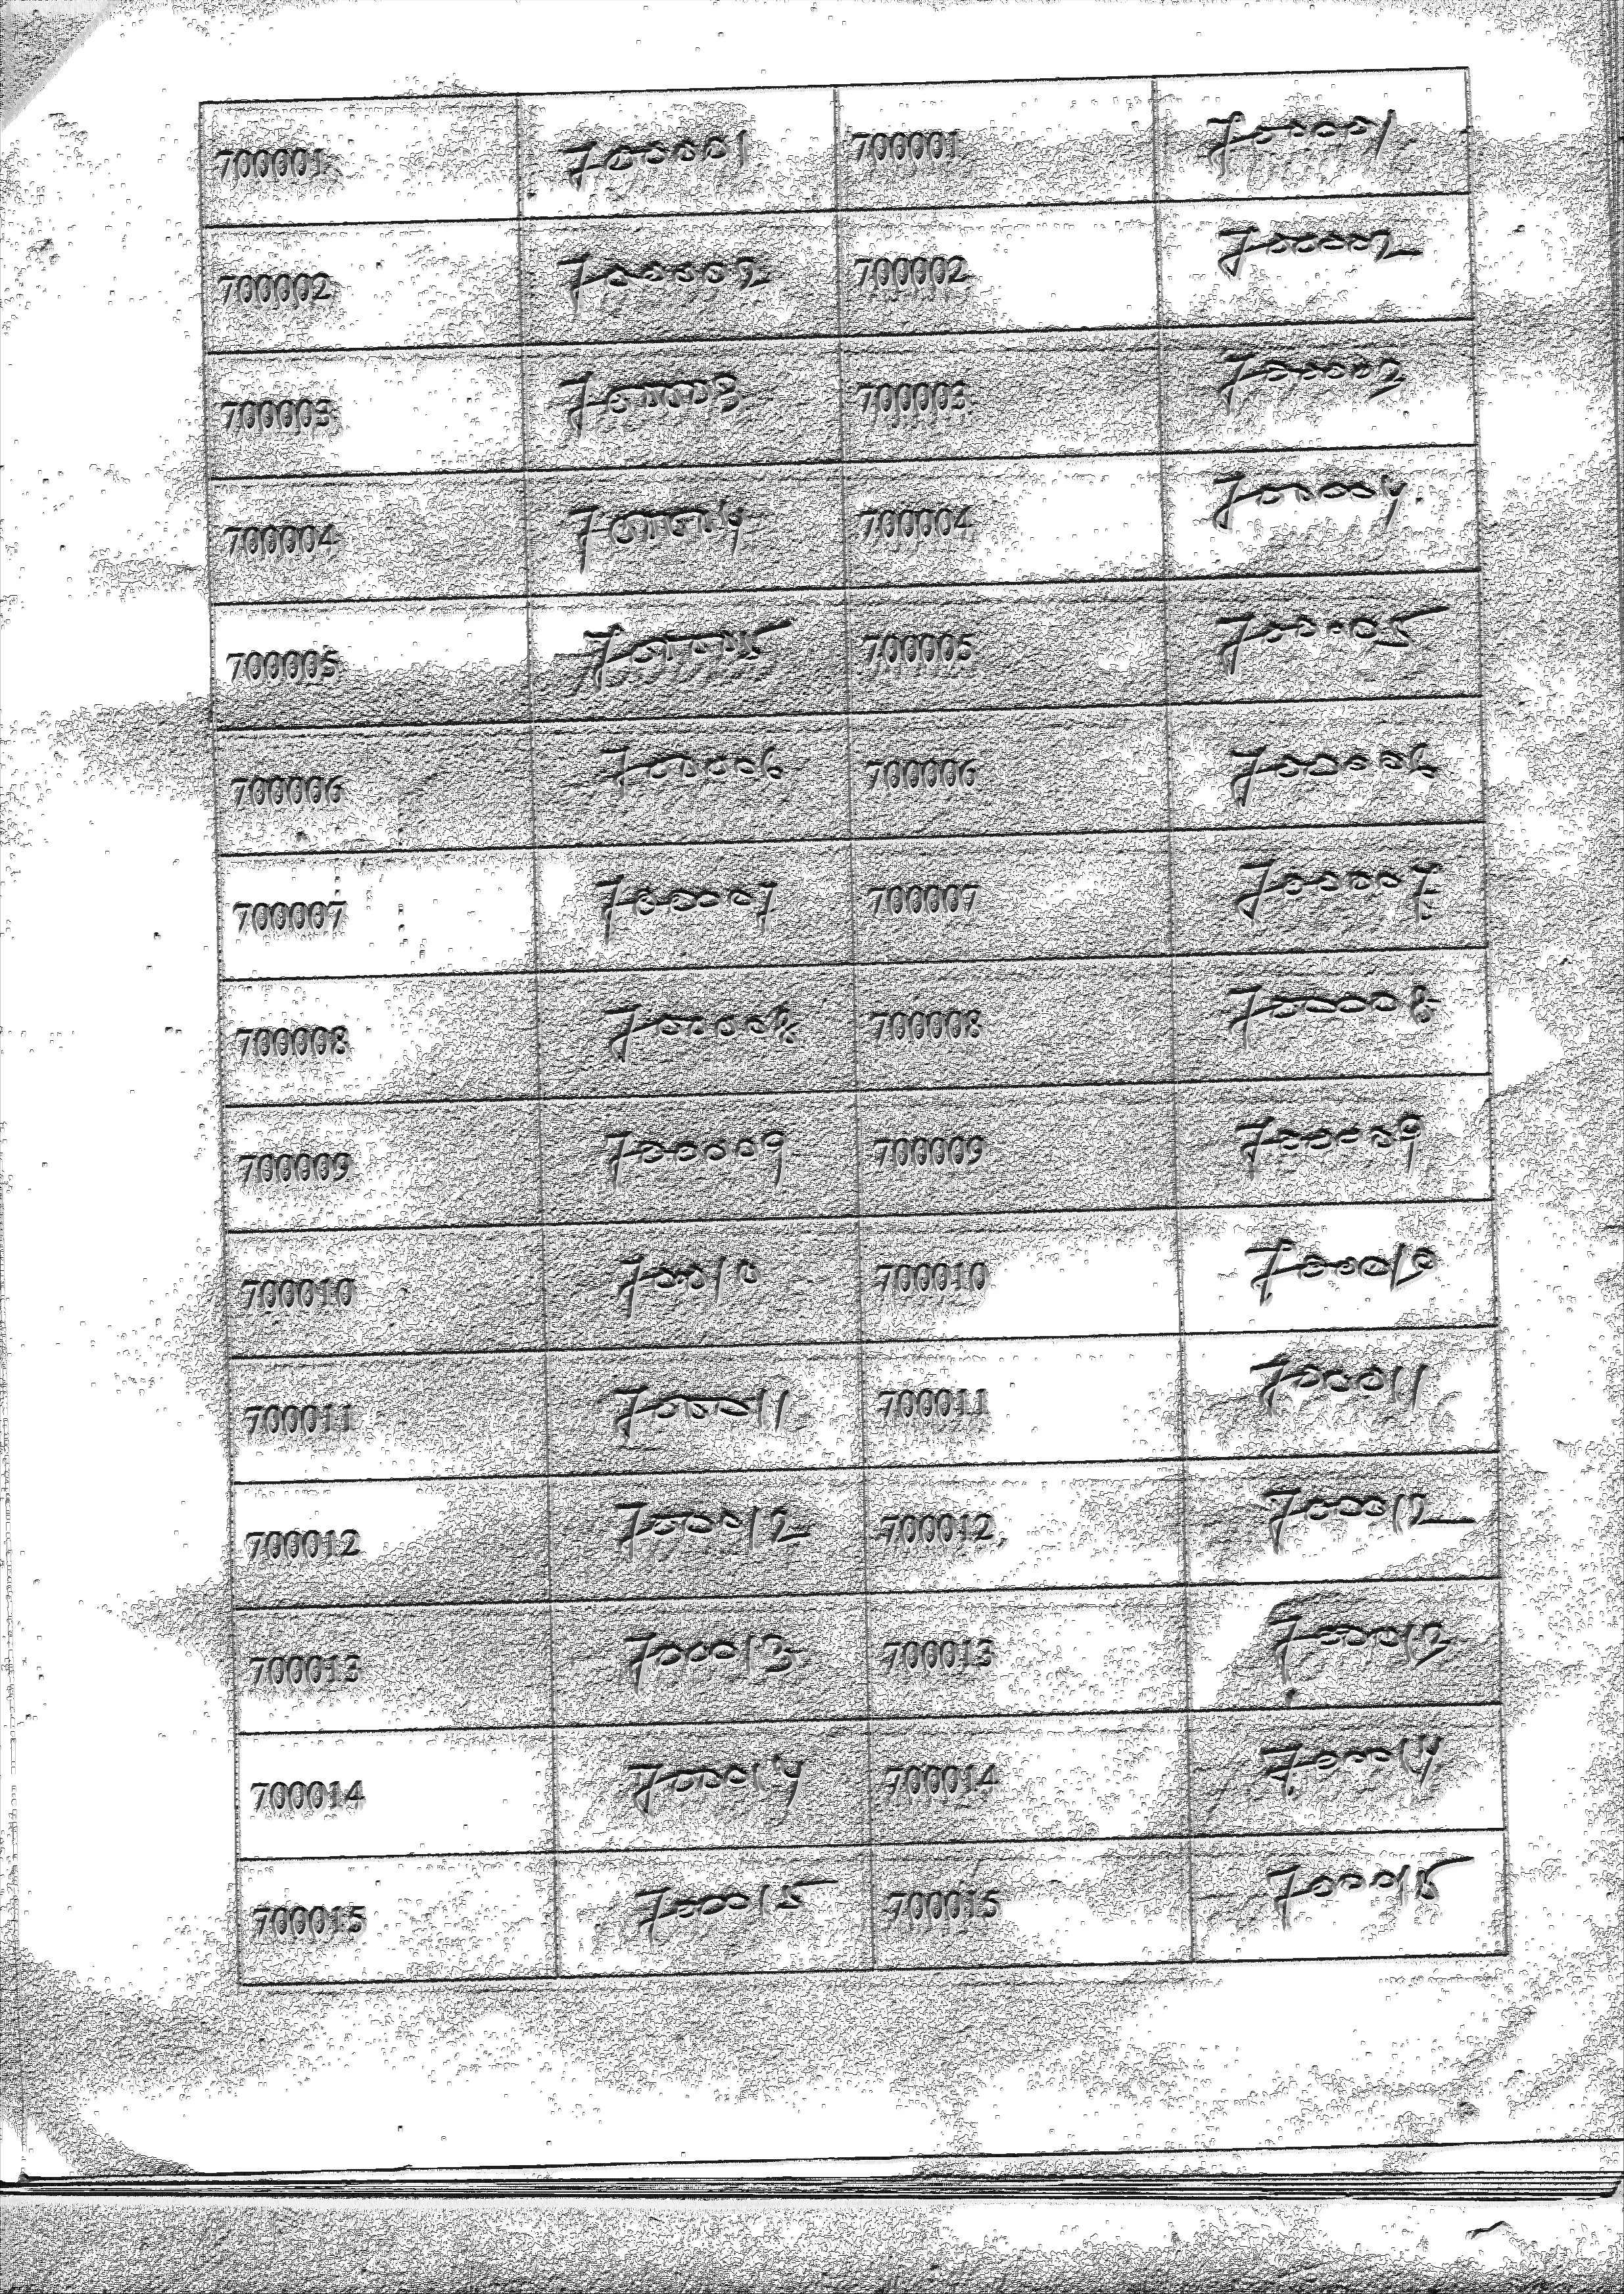 700001 700001 700001 700001
700002 700002 700002 700002
700003 700003 700003 700003
700004 700004 700004 700004
700005 700005 700005 700005
700006 700006 700006 700006
700007 700007 700007 700007
700008 700008 700008 700008
700009 700009 700009 700009
700010 70010 700010 700010
700011 700011 700011 700011
700012 700012 700012 700012
700013 700013 700013 700013
700014 700014 700014 700014
700015 700015 700015 700015